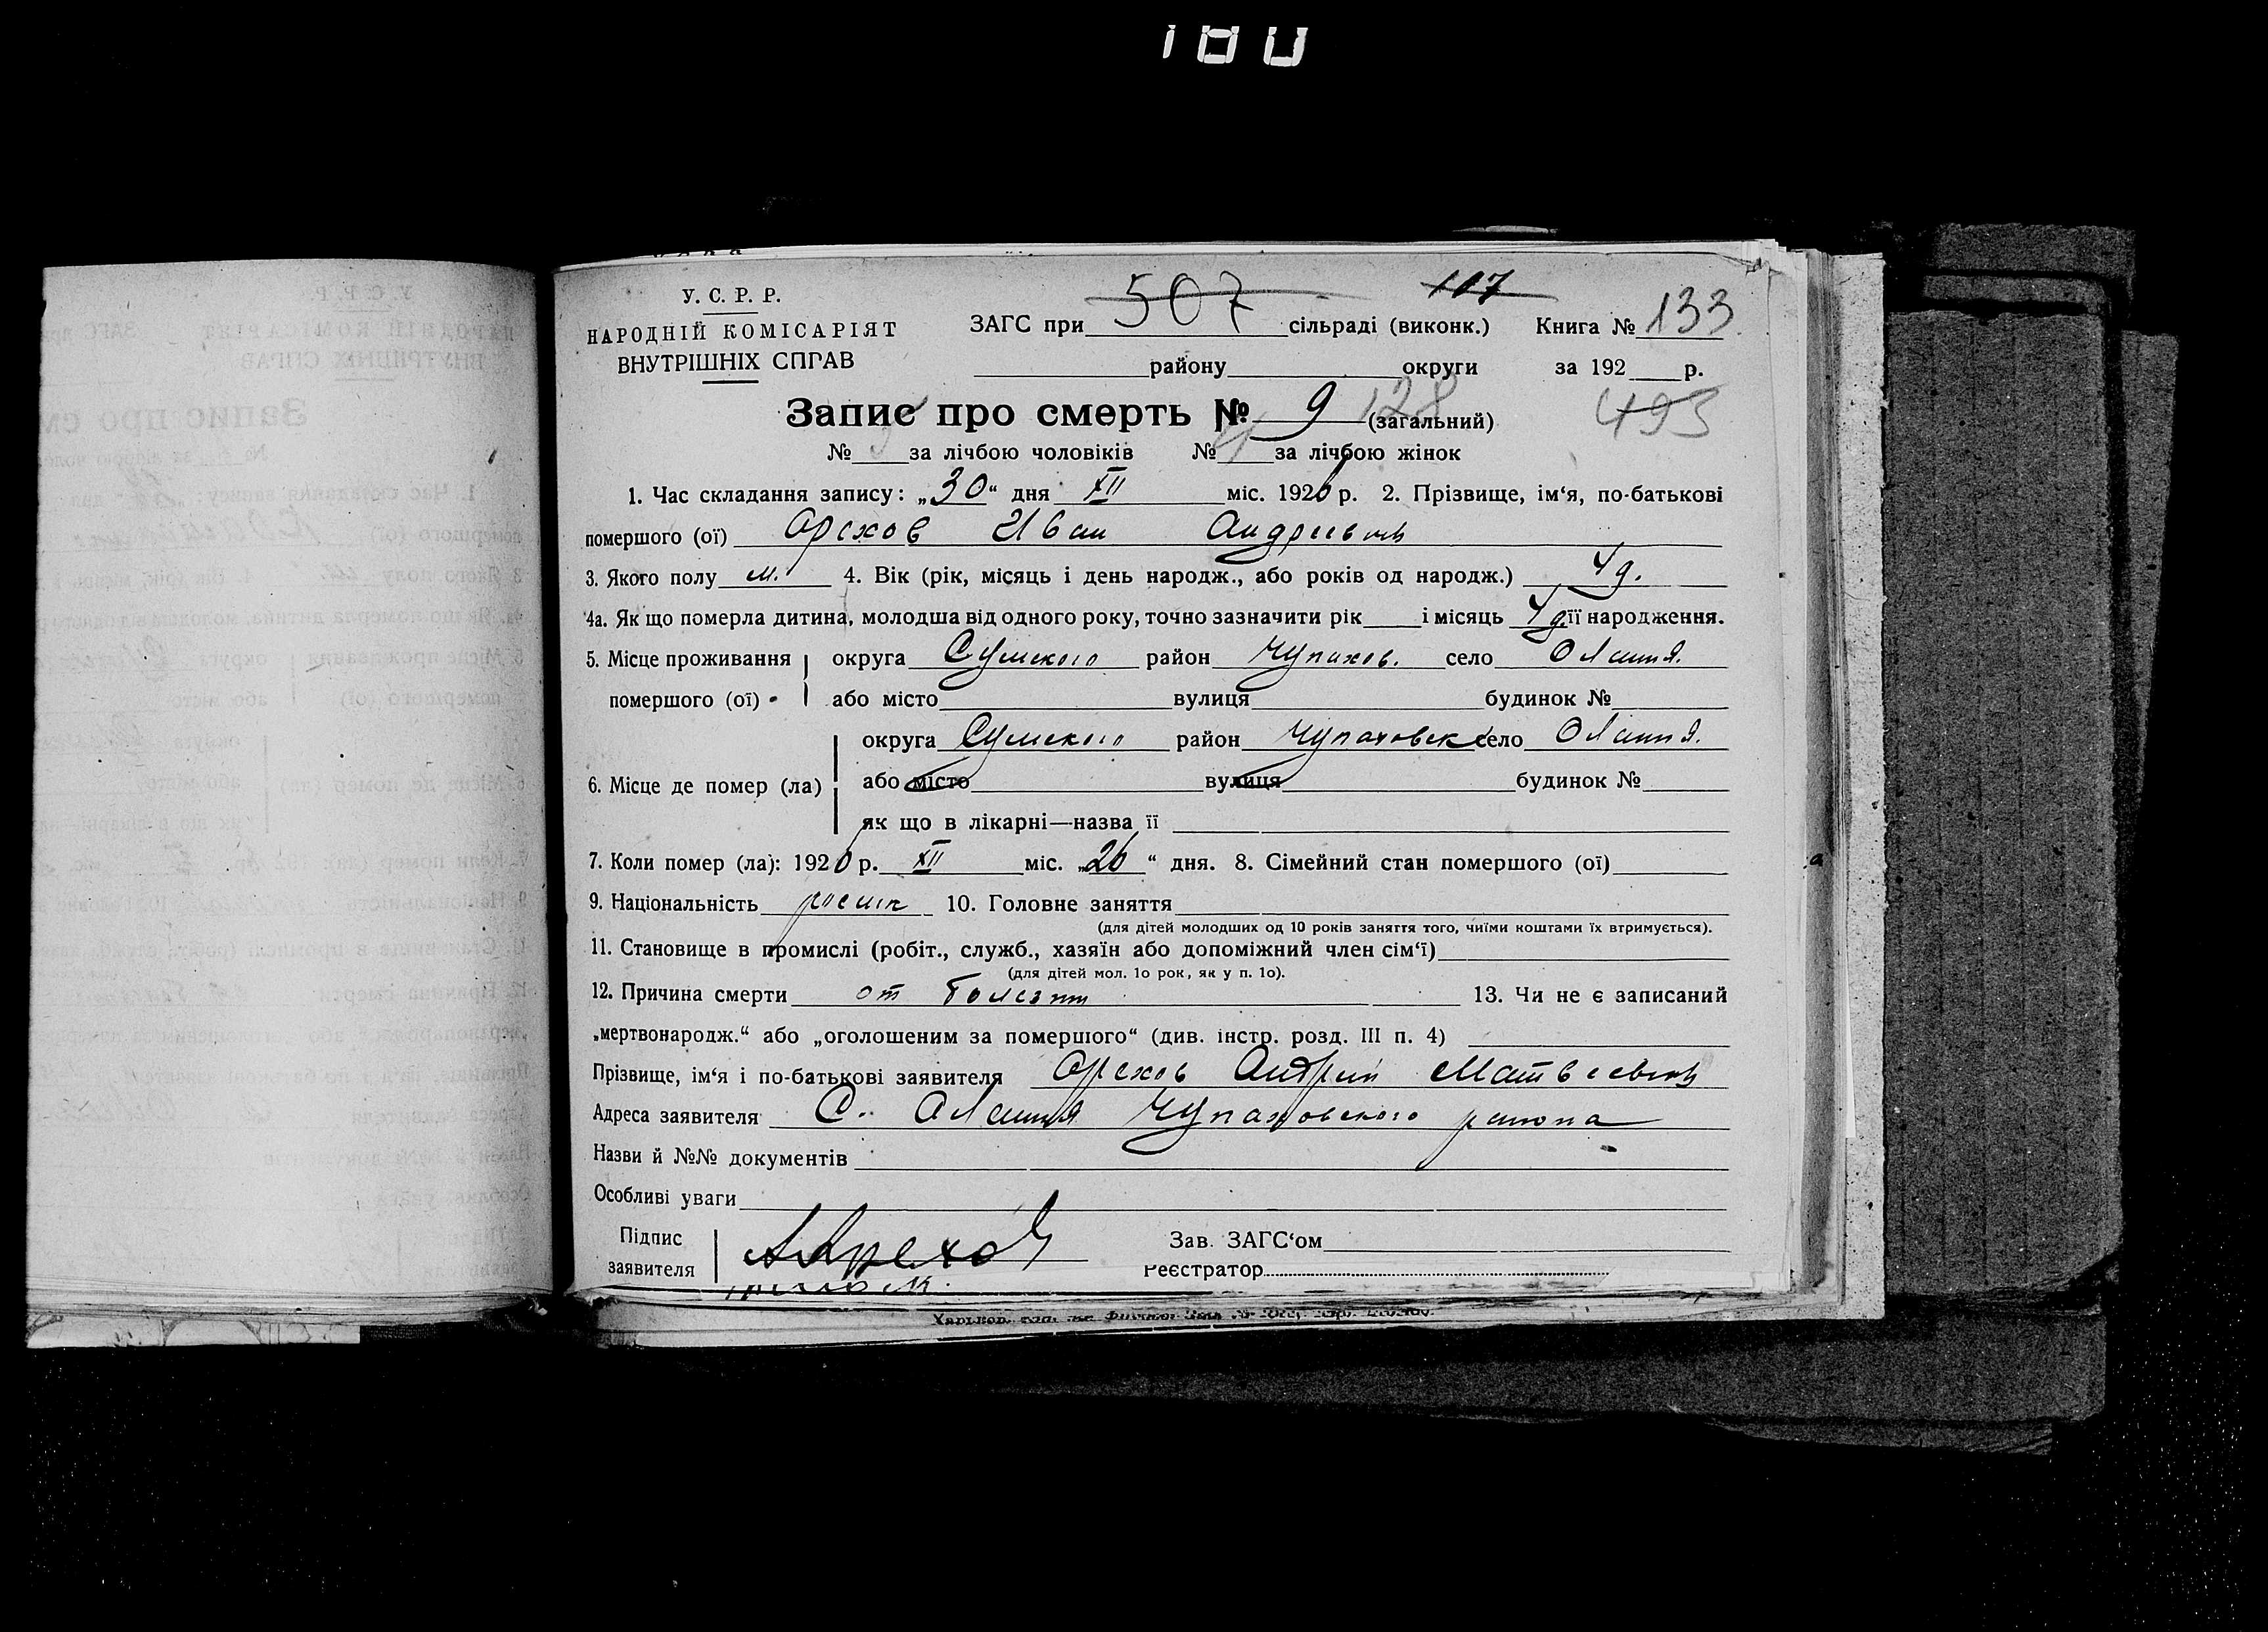 180
У. С. Р. Р.
НАРОДНІЙ КОМІСАРІЯТ
ВНУТРІШНІХ СПРАВ
ЗАГС при 507 сільраді (виконк.) 107 Книга № 133
району округи за 192 р.
Запис про смерть № 9 128 (загальний) 493
№ за лічбою чоловіків № за лічбою жінок
1. Час складання запису: „30“ дня XII міс. 1926 р. 2. Прізвище, ім‘я, по-батькові
помершого (ої) Орехов Иван Андреевич
3. Якого полу м. 4. Вік (рік, місяць і день народж., або років од народж.) 4 д.
4а. Як що померла дитина, молодша від одного року, точно зазначити рік і місяць 4 д. її народження.
5. Місце проживання округа Сумского район Чупахов. село Олешня.
помершого (ої) або місто вулиця будинок №
округа Сумского район Чупаховск село Олешня.
6. Місце де помер (ла) або місто вулиця будинок №
як що в лікарні—назва її
7. Коли помер (ла): 1926 р. XII міс. „26“ дня. 8. Сімейний стан помершого (ої)
9. Національність 10. Головне заняття
(для дітей молодших од 10 років заняття того, чиїми коштами їх втримується).
11. Становище в промислі (робіт., служб., хазяїн або допоміжний член сім‘ї)
(для дітей мол. 1о рок, як у п. 1о).
12. Причина смерти от болезни 13. Чи не є записаний
„мертвонародж.“ або „оголошеним за помершого“ (див. інстр. розд. III п. 4)
Прізвище, ім‘я і по-батькові заявителя Орехов Андрей Матвеевич
Адреса заявителя С. Олешня Чупаховского района
Назви й №№ документів
Особливі уваги
Підпис
заявителя А Орехов
Зав. ЗАГС‘ом
Реєстратор